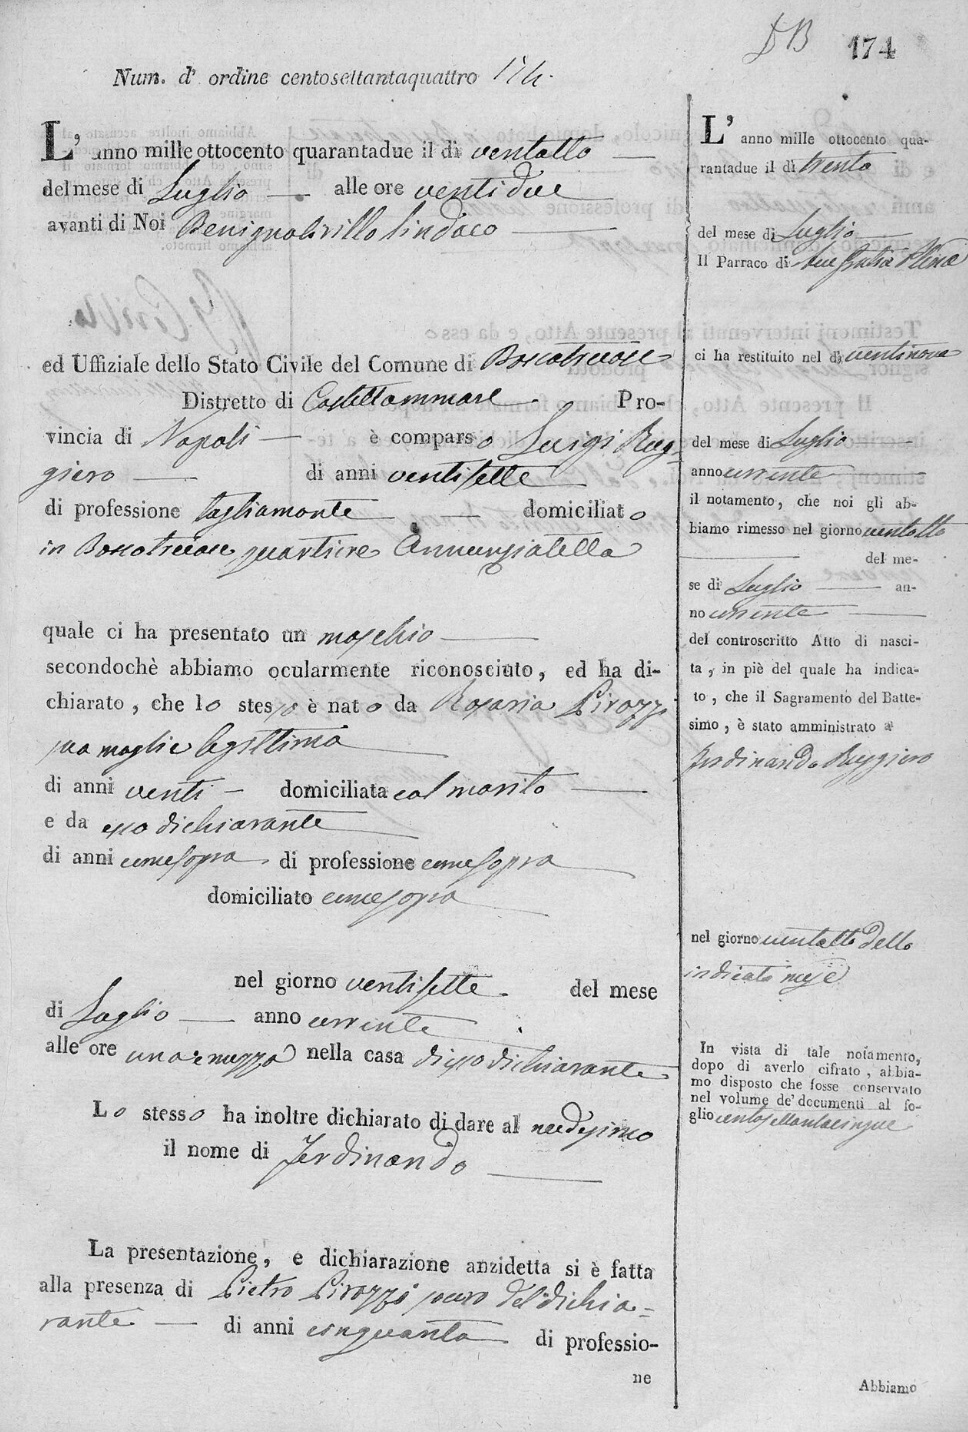 DB 174
Num. d' ordine centosettantaquattro 174.
L' anno mille ottocento quarantadue il dì ventotto
del mese di Luglio alle ore ventidue
avanti di Noi Benigno Cirillo Sindaco
ed Uffiziale dello Stato Civile del Comune di Boscotrecase
Distretto di Castellammare Pro-
vincia di Napoli è comparso Luigi Rug-
giero di anni ventisette
di professione tagliamonte domiciliato
in Boscotrecase quartiere Annunziatella
quale ci ha presentato un maschio
secondochè abbiamo ocularmente riconosciuto, ed ha di-
chiarato, che lo stesso è nato da Rosaria Pirozzi
sua moglie legittima
di anni venti domiciliata col marito
e da esso dichiarante
di anni come sopra di professione come sopra
domiciliato come sopra
nel giorno ventisette del mese
di Luglio anno corrente
alle ore una e mezza nella casa di esso dichiarante
Lo stesso ha inoltre dichiarato di dare al medesimo
il nome di Ferdinando
La presentazione, e dichiarazione anzidetta si è fatta
alla presenza di Pietro Pirozzi del dichia-
rante di anni cinquanta di professio-
ne
L' anno mille ottocento qua-
rantadue il dì trenta
del mese di Luglio
Il Parroco di
ci ha restituito nel dì ventinove
del mese di Luglio
anno corrente
il notamento, che noi gli ab-
biamo rimesso nel giorno ventotto
del me-
se di Luglio an-
no corrente
del controscritto Atto di nasci-
ta, in piè del quale ha indica-
to, che il Sagramento del Batte-
simo, è stato amministrato a
Ferdinando Ruggiero
nel giorno ventotto dello
indicato mese
In vista di tale notamento,
dopo di averlo cifrato, abbia-
mo disposto che fosse conservato
nel volume de' documenti al fo-
glio centosettantacinque
Abbiamo